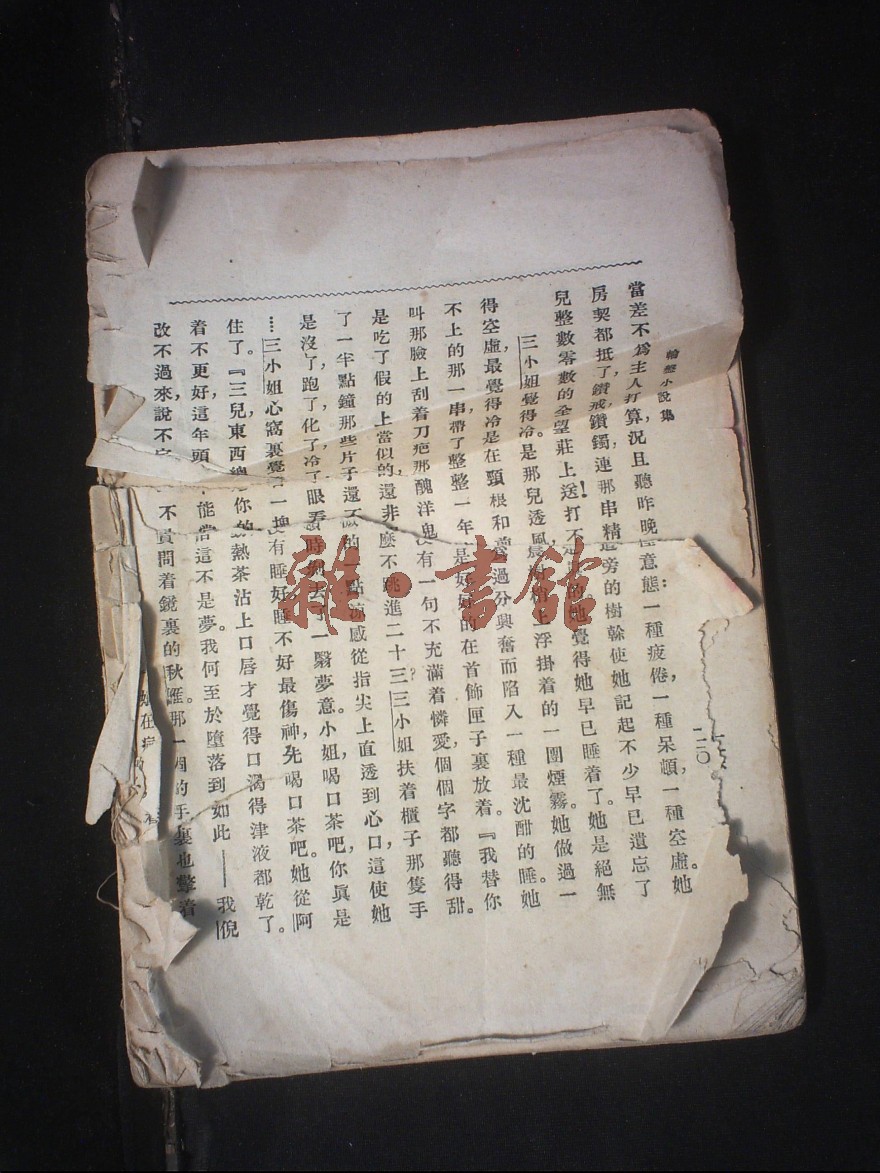 輪盤小說集
二〇
當差不為主人打算況且聽昨晚意態：一種疲倦，一種呆頓，一種空虛。她
房契都抵了，鑽戒，鑽鐲，連那串精旁的樹榦使她記起不少早已遺忘了
兒整數零數的全望莊上送！打不的她覺得她早已睡着了。她是絕無
三小姐覺得冷。是那兒透風，上浮掛着的一團煙霧。她做過一
得空虛，最覺得冷是在頸根和過分興奮而陷入一種最沈酣的睡。她
不上的那一串。帶了整整一年是好好的在首飾匣子裏放着。『我替你
叫那臉上刮着刀疤那醜洋鬼有一句不充滿着憐愛，個個字都聽得甜。
是吃了假的上當似的，還非麼不跳進二十三？三小姐扶着櫃子那隻手
了一半點鐘那些片子還的一點涼感從指尖上直透到心口，這使她
是沒了，跑了，化了，冷了，眼看時刷去了一翳夢意。小姐喝口茶吧，你真是
…三小姐心窩裏覺一塊有睡好，睡不好最傷神，先喝口茶吧。她從阿
住了。『三兒，東西總你熱茶沾上口唇才覺得口渴得津液都乾了。
着不更好，這年頭能當這不是夢。我何至於墮落到如此——我倪
改不過來，說不定不問着鏡裏的秋雁。那一個的手裏也擎着
雜·書館